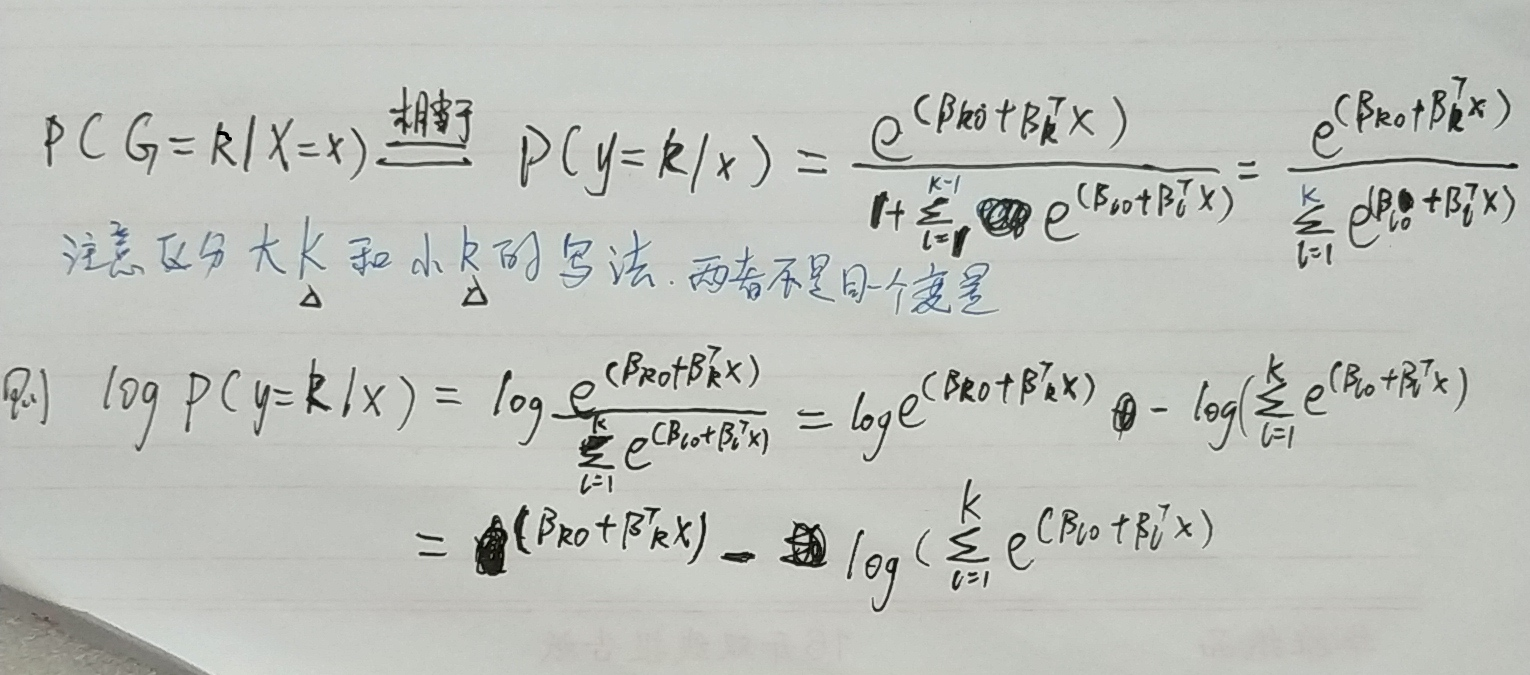 P(G=k|X=x) 相当于 P(y=k|x) = e^(βk0+βk^T x) / (1+Σ_{l=1}^{K-1} e^(βl0+βl^T x)) = e^(βk0+βk^T x) / Σ_{l=1}^{K} e^(βl0+βl^T x)
注意区分大K和小k的写法.两者不是同一个变量
log P(y=k|x) = log e^(βk0+βk^T x) / Σ_{l=1}^{K} e^(βl0+βl^T x) = log e^(βk0+βk^T x) - log(Σ_{l=1}^{K} e^(βl0+βl^T x)
= (βk0+βk^T x) - log(Σ_{l=1}^{K} e^(βl0+βl^T x)